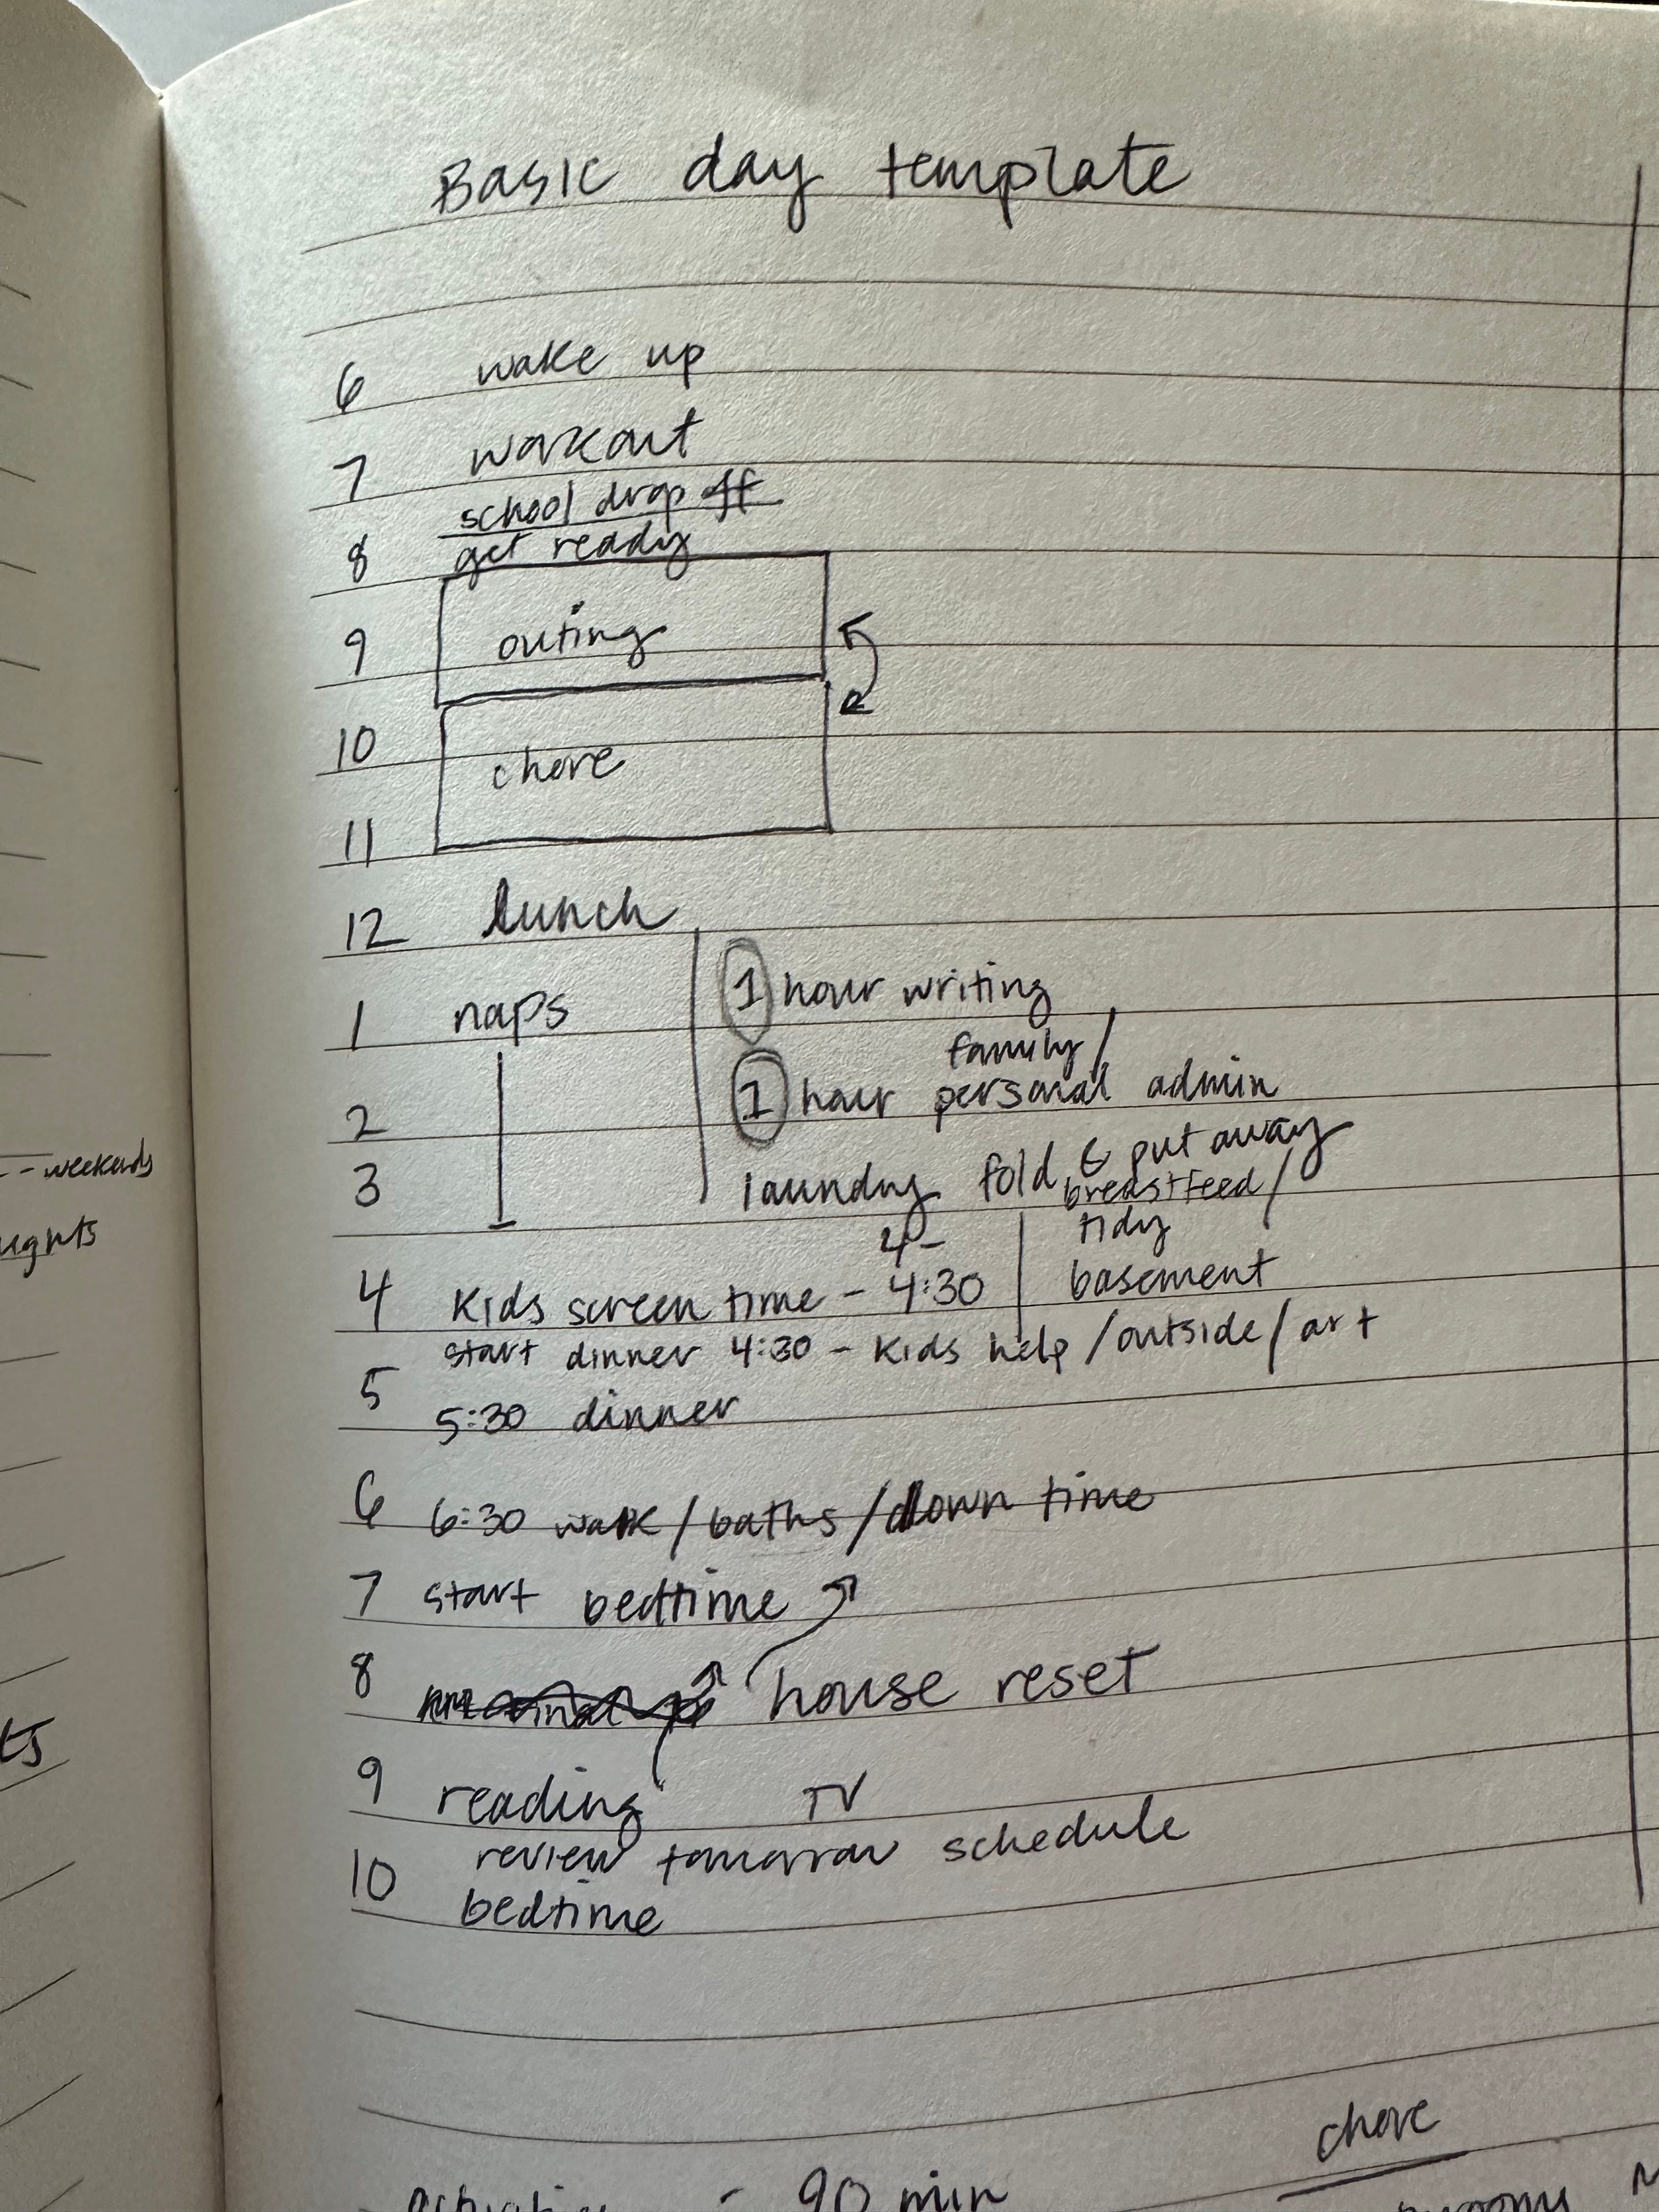 Basic day template
6 wake up
7 workout
school drop off
8 get ready
9 outing
10
chore
11
12 lunch
1 naps 1 hour writing
family/
2 1 hour personal admin
3 laundry fold & put away
breastfeed/
4- tidy
4 Kids screen time - 4:30 basement
start dinner 4:30 - Kids help /outside/art
5
5:30 dinner
6 6:30 walk/baths/down time
7 start bedtime
8 house reset
9 reading TV
review tomorrow schedule
10
bedtime
- weekends
chore
- 90 min